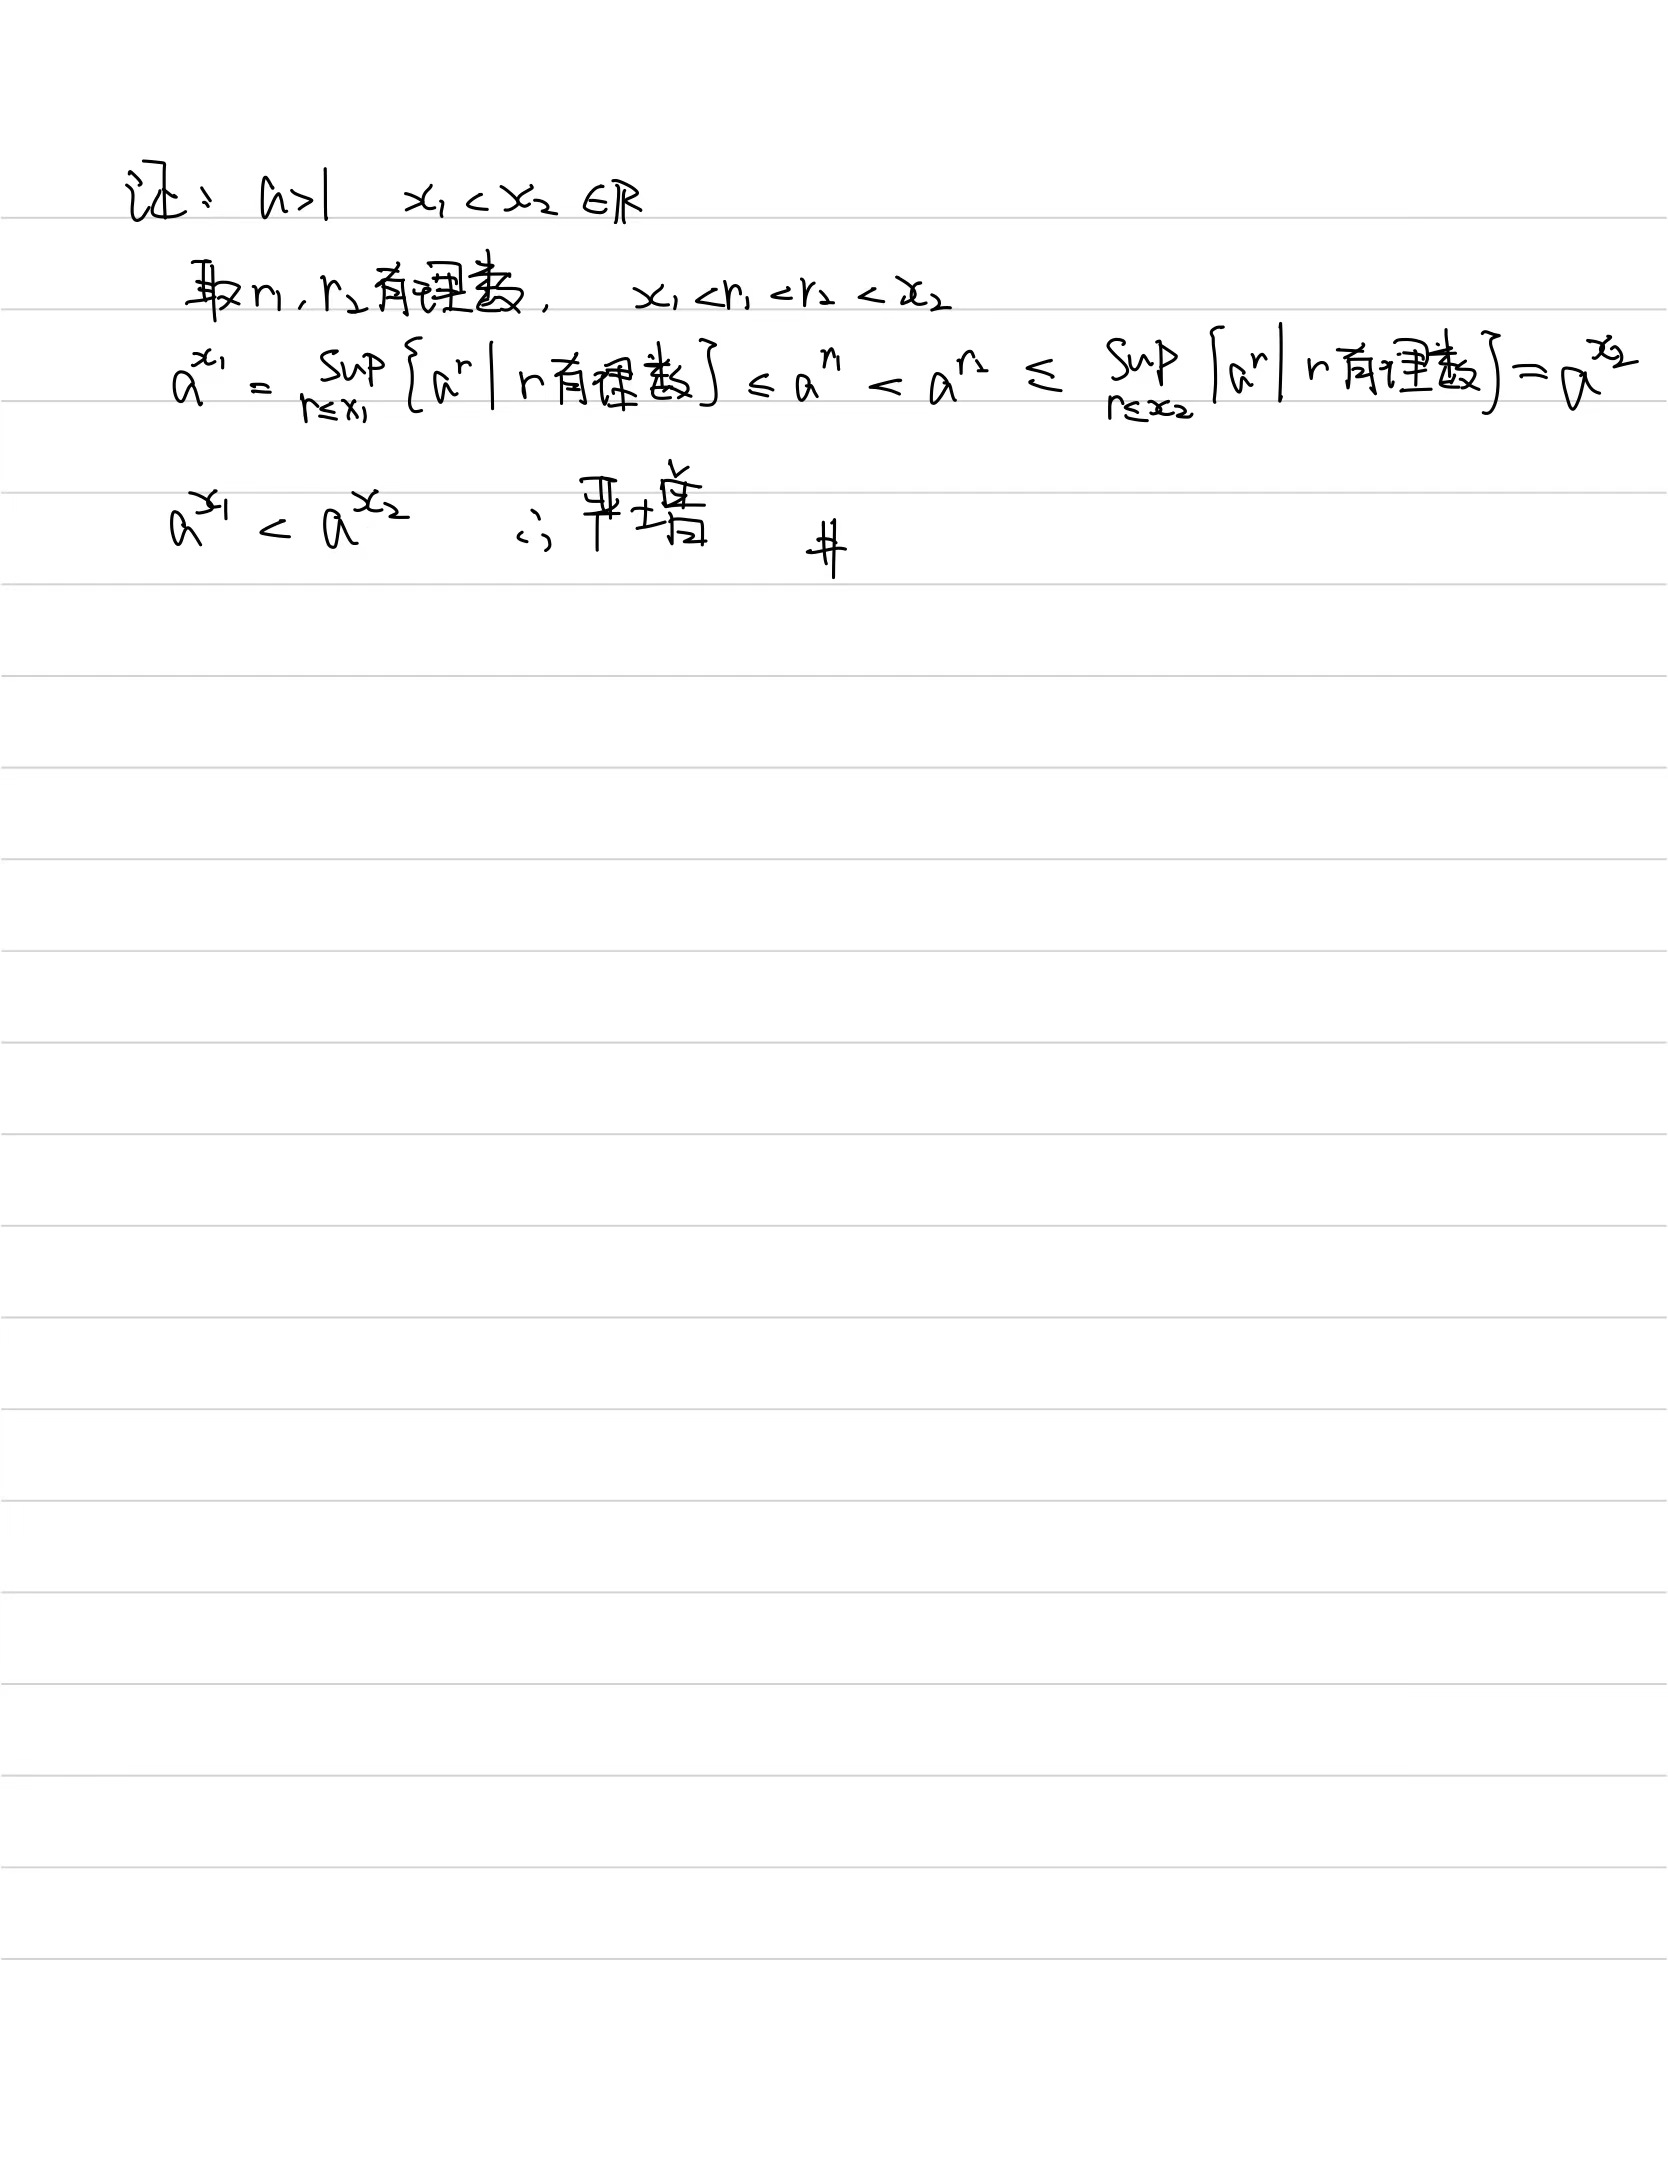 证: a>1 x₁<x₂∈ℝ
取r₁, r₂有理数, x₁<r₁<r₂<x₂
a^{x₁} = sup_{r≤x₁} {a^r | r有理数} ≤ a^{r₁} < a^{r₂} ≤ sup_{r≤x₂} {a^r | r有理数} = a^{x₂}
a^{x₁} < a^{x₂} ∴ 严增 #